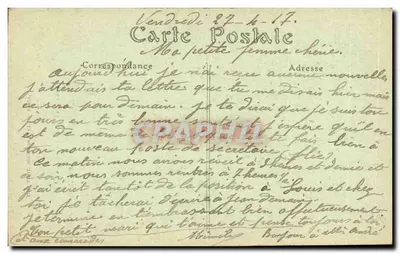 Vendredi 27-4-17.
Carte Postale
Ma petite femme chérie.
Correspondance Adresse
aujourd'hui je n'ai reçu aucune nouvelles
j'attendais ta lettre que tu me disais hier mais
ce sera pour demain. je te dirai que je suis tou
jours en très bonne santé et j'espère qu'il en
est de même
CPAPHIL
fait bien à
ton nouveau poste de secrétaire
Ce matin nous avions réveil à 3 heures et demie et
ce soir nous sommes rentrés à 7 heures 1/2
j'ai écrit tantôt de la position à Louis et chez
toi je tacherai d'écrire à Jean demain
je termine en t'embrassant bien affectueusement
Ton petit mari qui t'aime et pense toujours à toi
Bonjour à
et aux camarades